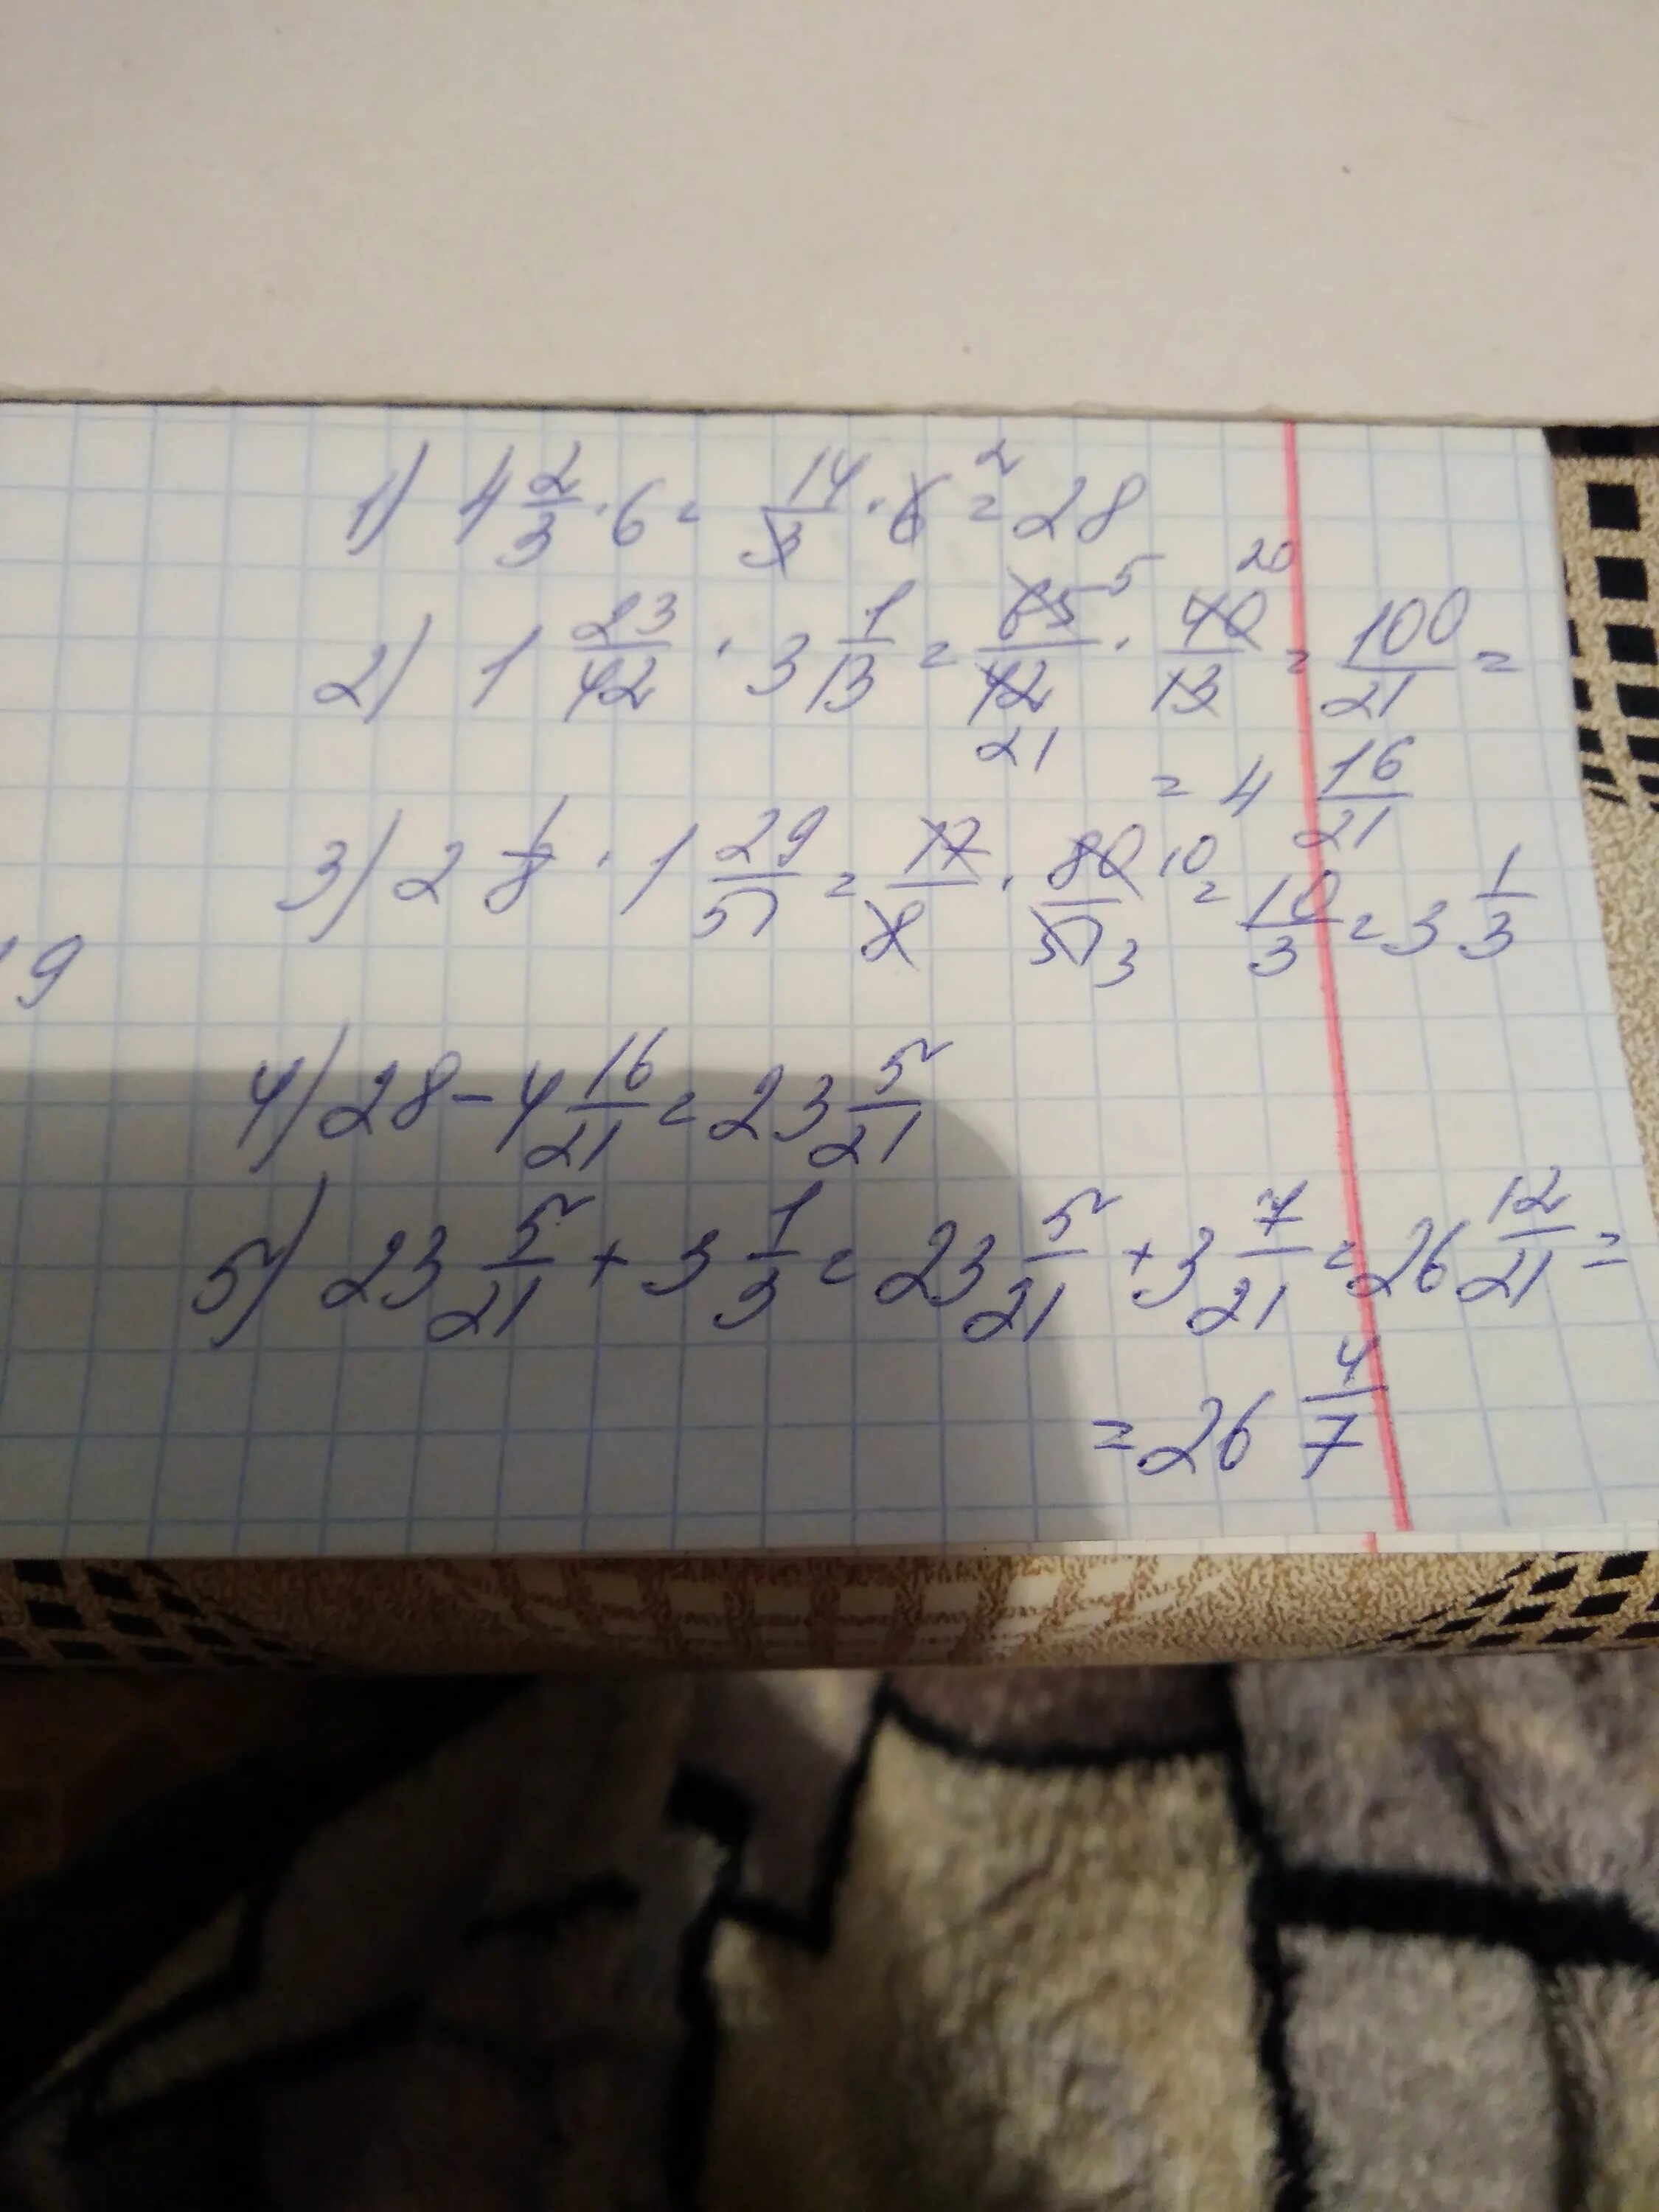 1) 4 2/3 · 6 = 14/3 · 6 2 = 28
2) 1 23/42 · 3 1/13 = 65 5/42 21 · 40 20/13 = 100/21 =
= 4 16/21
3) 2 1/8 · 1 29/51 = 17/8 · 80 10/51 3 = 10/3 = 3 1/3
19
4) 28 - 4 16/21 = 23 5/21
5) 23 5/21 + 3 1/3 = 23 5/21 + 3 7/21 = 26 12/21 =
= 26 4/7